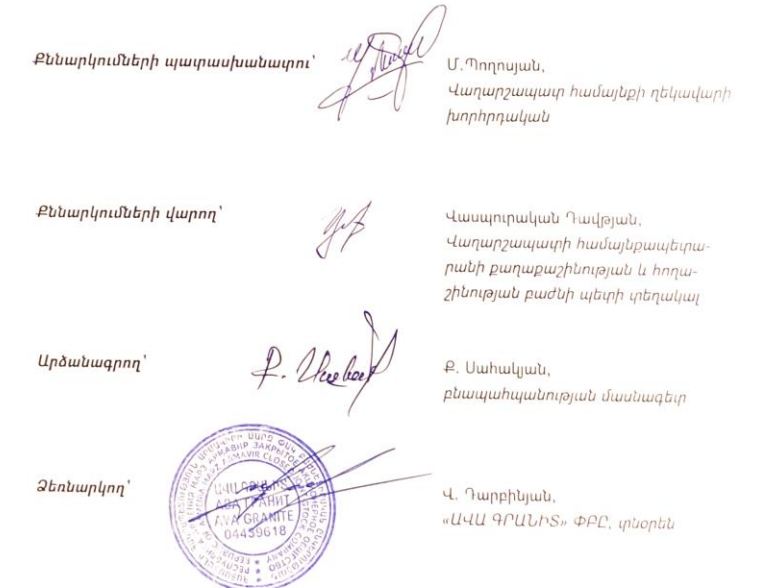 Քննարկումների պատասխանատու՝
Մ.Պողոսյան,
Վաղարշապատ համայնքի ղեկավարի
խորհրդական
Քննարկումների վարող՝
Վասպուրական Դավթյան,
Վաղարշապատի համայնքապետա-
րանի քաղաքաշինության և հողա-
շինության բաժնի պետի տեղակալ
Արձանագրող՝
Ք. Սահակյան,
բնապահպանության մասնագետ
Ձեռնարկող՝
Վ. Դարբինյան,
«ԱՎԱ ԳՐԱՆԻՏ» ՓԲԸ, տնօրեն
АВА ГРАНИТ
AVA GRANITE
04439618